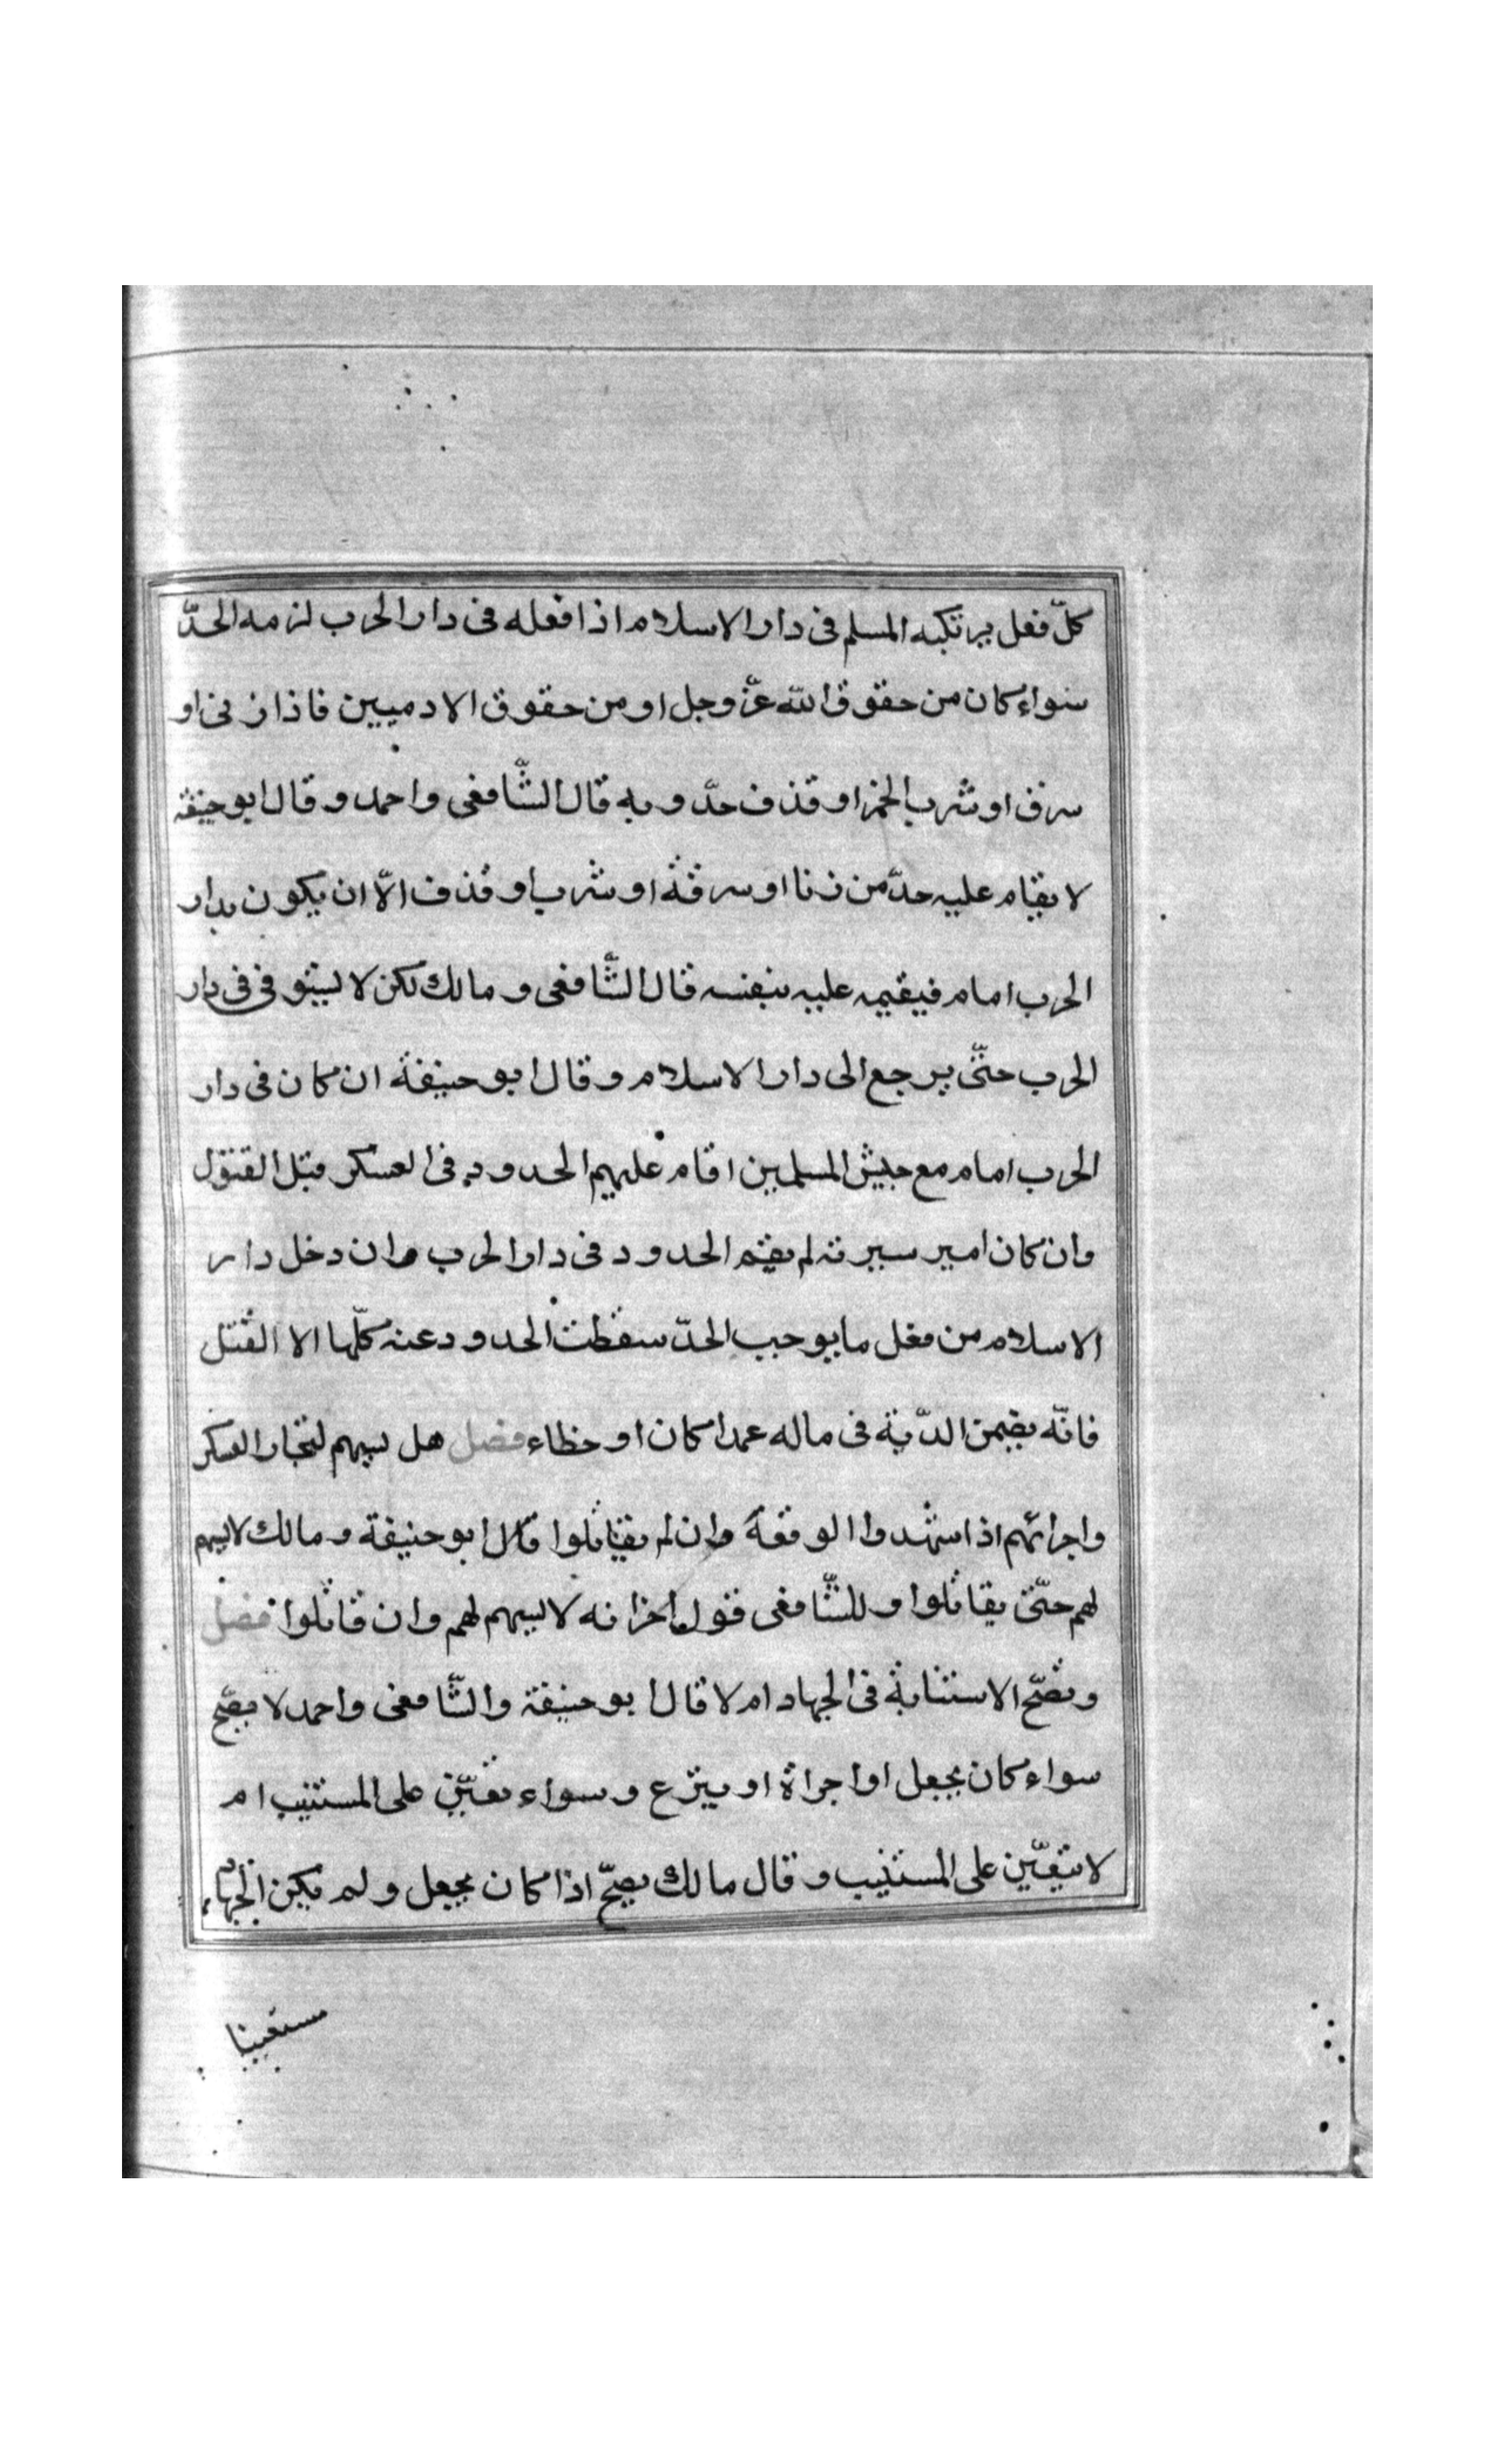 كلّ فعل يرتكبه المسلم فى دار الاسلام اذا فعله فى دار الحرب لزمه الحدّ
سواء كان من حقوق الله عزّ وجل او من حقوق الادميين فاذا زنى او
سرق او شرب الخمر او قذف حدّ و به قال الشّافعى واحمد وقال ابو حنيفة
لا يقام عليه حدّ من زنا او سرقة او شرب او قذف الّا ان يكون بدار
الحرب امام فيقيمه عليه بنفسه قال الشّافعى و مالك لكن لا يستوفى فى دار
الحرب حتّى يرجع الى دار الاسلام وقال ابو حنيفة ان كان فى دار
الحرب امام مع جيش المسلمين اقام عليهم الحدود فى العسكر قبل القفول
وان كان امير سيرته لم يقم الحدود فى دار الحرب وان دخل دار
الاسلام من فعل ما يوجب الحدّ سقطت الحدود عنه كلّها الا القتل
فانّه يضمن الدّية فى ماله عمدا كان او خطاء فصل هل يسهم لتجار العسكر
واجرائهم اذا شهدوا الوقعة وان لم يقاتلوا قال ابو حنيفة و مالك لا يسهم
لهم حتّى يقاتلوا وللشّافعى قول اخر انه لا يسهم لهم وان قاتلوا فصل
وتصحّ الاستنابة فى الجهاد ام لا قال ابو حنيفة والشّافعى واحمد لا يصحّ
سواء كان بجعل او اجراة او بتبرع وسواء تعيّن على المستنيب ام
لا يتعيّن على المستنيب وقال مالك يصحّ اذا كان بجعل ولم يكن الجهاد
متعينا